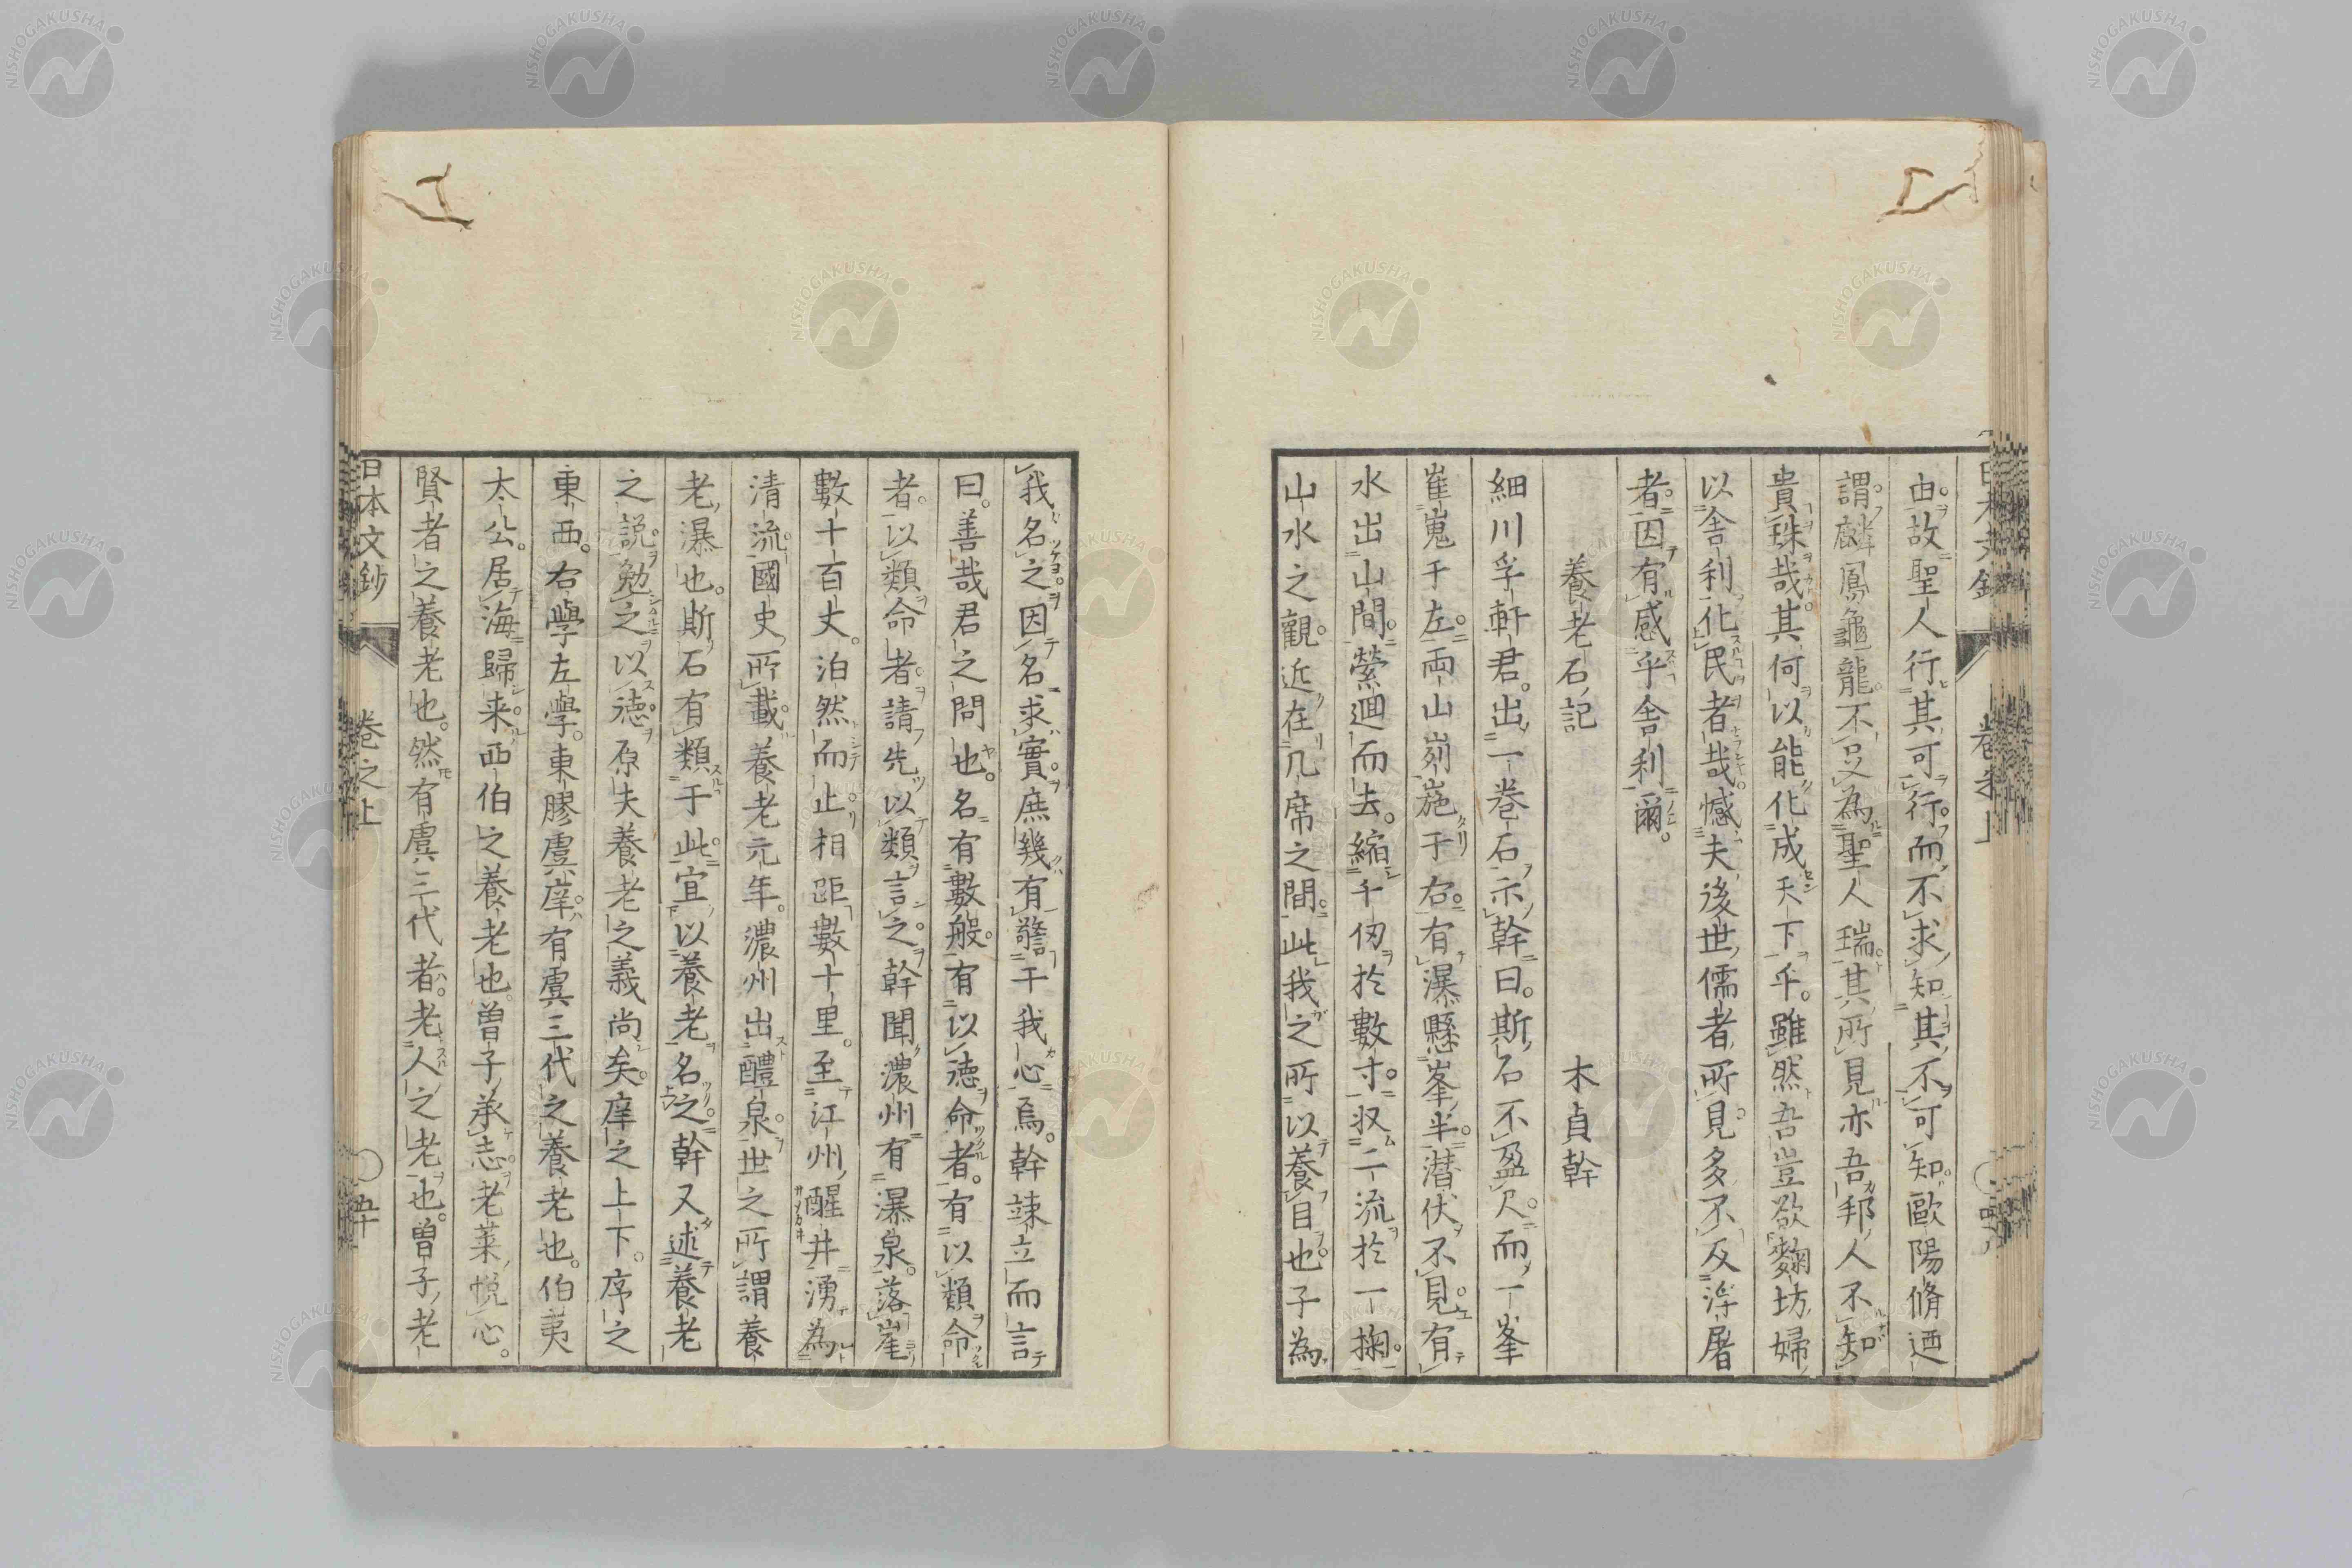 由故聖人行其可行而不求知其不可知歐陽脩迺
謂麟鳳龜龍不足為聖人瑞其所見亦吾邦人不知
貴珠哉其何以能化成天下乎雖然吾豈欲麴坊婦
以舍利化民者哉憾夫後世儒者所見多不及浮屠
者因有感乎舍利爾
養老石記 木貞幹
細川孚軒君出一卷石示幹曰斯石不盈尺而一峯
崔嵬于左兩山峛崺于右有瀑懸峯半潛伏不見有
水出山間縈迴而去縮千仞於數寸収二流於一掬
山水之觀近在几席之間此我之所以養目也子為
我名之因名求實庶幾有警于我心焉幹竦立而言
曰善哉君之問也名有數般有以德命者有以類命
者以類命者請先以類言之幹聞濃州有瀑泉落崖
數十百丈泊然而止相距數十里至江州醒井湧為
清流國史所載養老元年濃州出醴泉世之所謂養
老瀑也斯石有類于此宜以養老名之幹又述養老
之說勉之以德原夫養老之義尚矣庠之上下序之
東西右學左學東膠虞庠有虞三代之養老也伯夷
太公居海歸来西伯之養老也曽子承志老萊悦心
賢者之養老也然有虞三代者老人之老也曽子老
日本文鈔 卷之上 五十